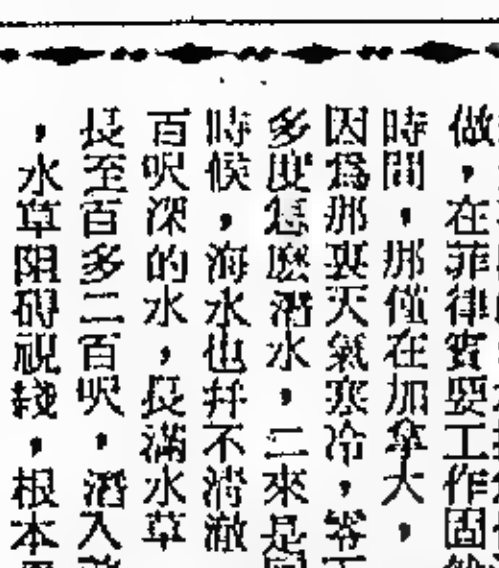 做，在菲律賓要工作固
時間，那僅在加拿大，
因爲那裏天氣寒冷，零下
多度怎麽潛水，二來是
時候，海水也幷不清澈
百呎深的水，長滿水草
長至百多二百呎，潛入
，水草阻碍視綫，根本